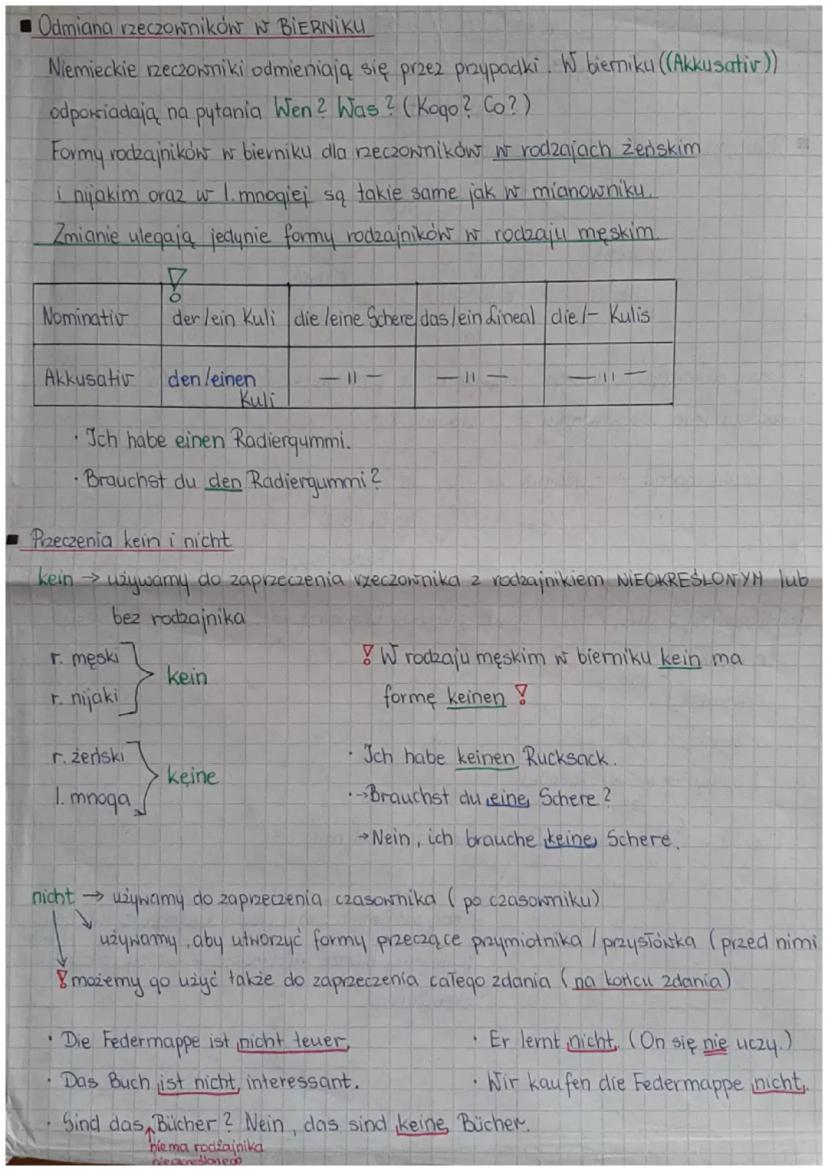 ▪ Odmiana rzeczowników w BIERNIKU
Niemieckie rzeczowniki odmieniają się przez przypadki. W bierniku ((Akkusativ))
odpowiadają na pytania Wen? Was? (Kogo? Co?)
Formy rodzajników w bierniku dla rzeczowników w rodzajach żeńskim
i nijakim oraz w l. mnogiej są takie same jak w mianowniku.
Zmianie ulegają jedynie formy rodzajników w rodzaju męskim.
!
Nominativ der/ein Kuli die/eine Schere das/ein Lineal die/- Kulis
Akkusativ den/einen Kuli —||— —||— —||—
· Ich habe einen Radiergummi.
· Brauchst du den Radiergummi?
▪ Przeczenia kein i nicht
kein → używamy do zaprzeczenia rzeczownika z rodzajnikiem NIEOKREŚLONYM lub
bez rodzajnika
r. męski
r. nijaki
kein
! W rodzaju męskim w bierniku kein ma
formę keinen !
r. żeński
l. mnoga
keine
· Ich habe keinen Rucksack.
· →Brauchst du eine Schere?
→Nein, ich brauche keine Schere.
nicht → używamy do zaprzeczenia czasownika (po czasowniku)
używamy, aby utworzyć formy przeczące przymiotnika / przysłówka (przed nimi
! możemy go użyć także do zaprzeczenia całego zdania (na końcu zdania)
· Die Federmappe ist nicht teuer.
· Er lernt nicht. (On się nie uczy.)
· Das Buch ist nicht interessant.
· Wir kaufen die Federmappe nicht.
· Sind das Bücher? Nein, das sind keine Bücher.
nie ma rodzajnika
nieokreślonego